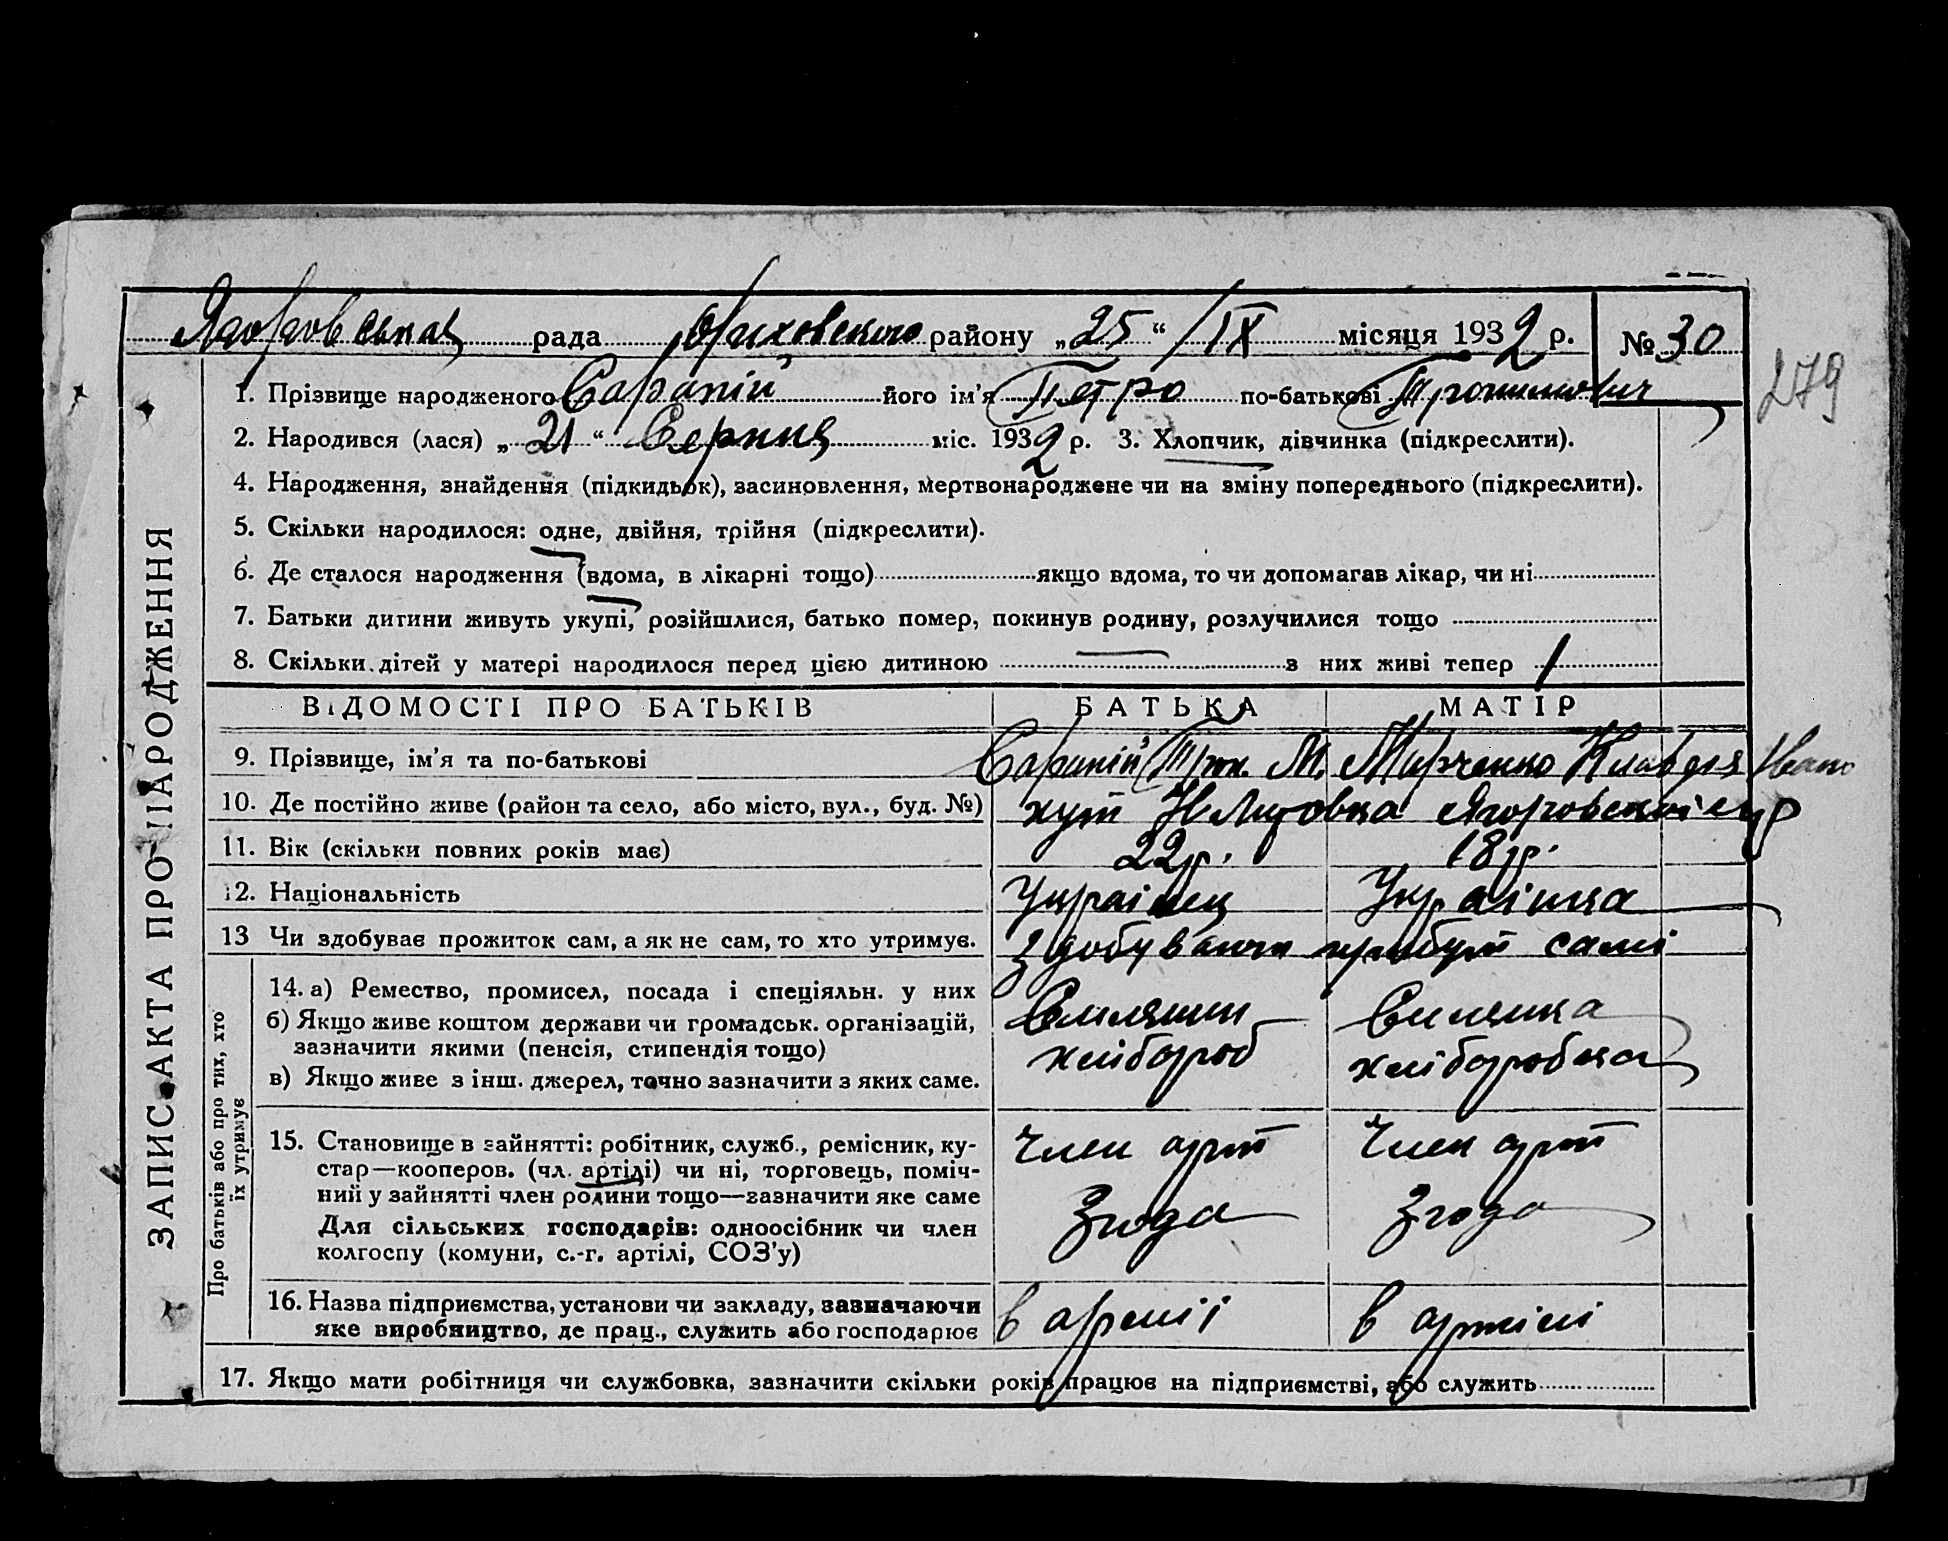 рада Оріховского району „25“ /IX місяця 1932 р. № 30
279
1. Прізвище народженого Сарапій його ім'я Петро по-батькові
2. Народився (лася) „21“ Серпня міс. 1932 р. 3. Хлопчик, дівчинка (підкреслити).
4. Народження, знайдення (підкидьок), засиновлення, мертвонароджене чи на зміну попереднього (підкреслити).
5. Скільки народилося: одне, двійня, трійня (підкреслити).
6. Де сталося народження (вдома, в лікарні тощо) якщо вдома, то чи допомагав лікар, чи ні
7. Батьки дитини живуть укупі, розійшлися, батько помер, покинув родину, розлучилися тощо
8. Скільки дітей у матері народилося перед цією дитиною — з них живі тепер 1
ВІДОМОСТІ ПРО БАТЬКІВ БАТЬКА МАТІР
9. Прізвище, ім'я та по-батькові Сарапій М. Марченко Клавдія Івано
10. Де постійно живе (район та село, або місто, вул., буд. №) хут
11. Вік (скільки повних років має) 22 р. 18 р.
12. Національність Українец Українка
13 Чи здобуває прожиток сам, а як не сам, то хто утримує. самі
14. а) Ремество, промисел, посада і спеціяльн. у них Селянин Селянка
б) Якщо живе коштом держави чи громадськ. організацій, хлібороб хліборобка
зазначити якими (пенсія, стипендія тощо)
в) Якщо живе з інш. джерел, точно зазначити з яких саме.
15. Становище в зайнятті: робітник, служб., ремісник, ку- Член арт Член арт
стар—кооперов. (чл. артілі) чи ні, торговець, поміч-
ний у зайнятті член родини тощо—зазначити яке саме Згода Згода
Для сільських господарів: одноосібник чи член
колгоспу (комуни, с.-г. артілі, СОЗ'у)
16. Назва підприємства, установи чи закладу, зазначаючи в армії в артілі
яке виробництво, де прац., служить або господарює
17. Якщо мати робітниця чи службовка, зазначити скільки років працює на підприємстві, або служить
ЗАПИС АКТА ПРО НАРОДЖЕННЯ
Про батьків або про тих, хто
їх утримує